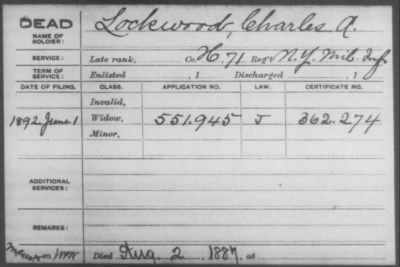 DEAD
NAME OF SOLDIER: Lockwood, Charles A.
SERVICE: Late rank, Co. H. 71 Reg't N.Y. Mil. Inf.
TERM OF SERVICE: Enlisted , 1 Discharged , 1
DATE OF FILING. CLASS. APPLICATION NO. LAW. CERTIFICATE NO.
Invalid,
1892 June 1 Widow, 551.945 J 362.274
Minor,
ADDITIONAL SERVICES:
REMARKS:
Died Aug. 2, 1887, at